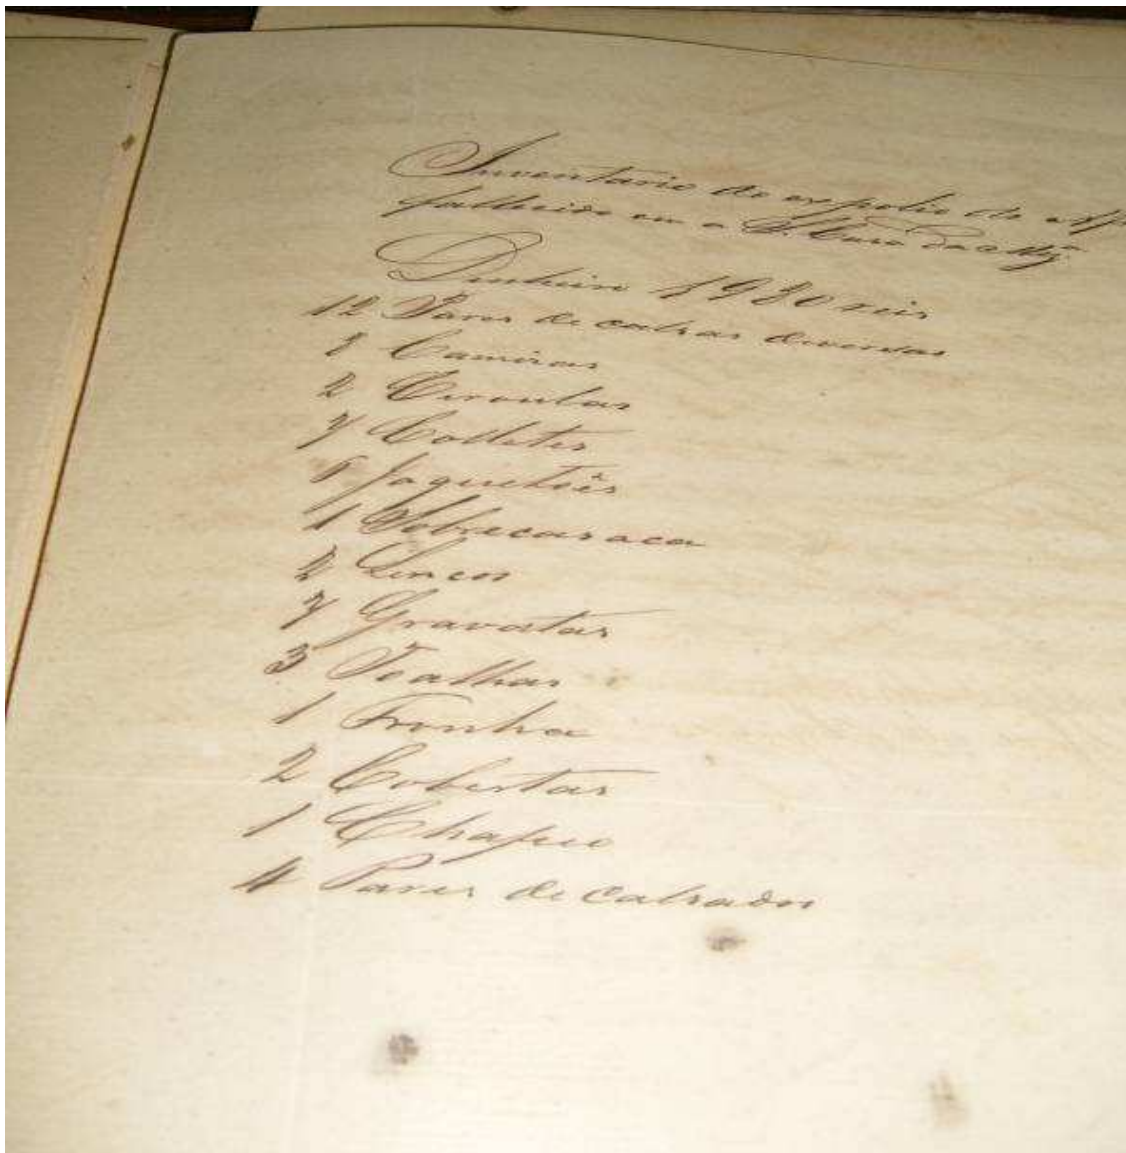 Inventario do expolio do
fallecido em a S. Casa da
Dinheiro 1980 reis
12 Pares de calsas diversas
8 Camisas
2 Ciroulas
7 Colletes
8 Jaquetões
1 Sobrecasaca
2 Lencos
7 Gravatas
3 Toalhas
1 Fronha
2 Cobertas
1 Chapeo
4 Pares de Calsados